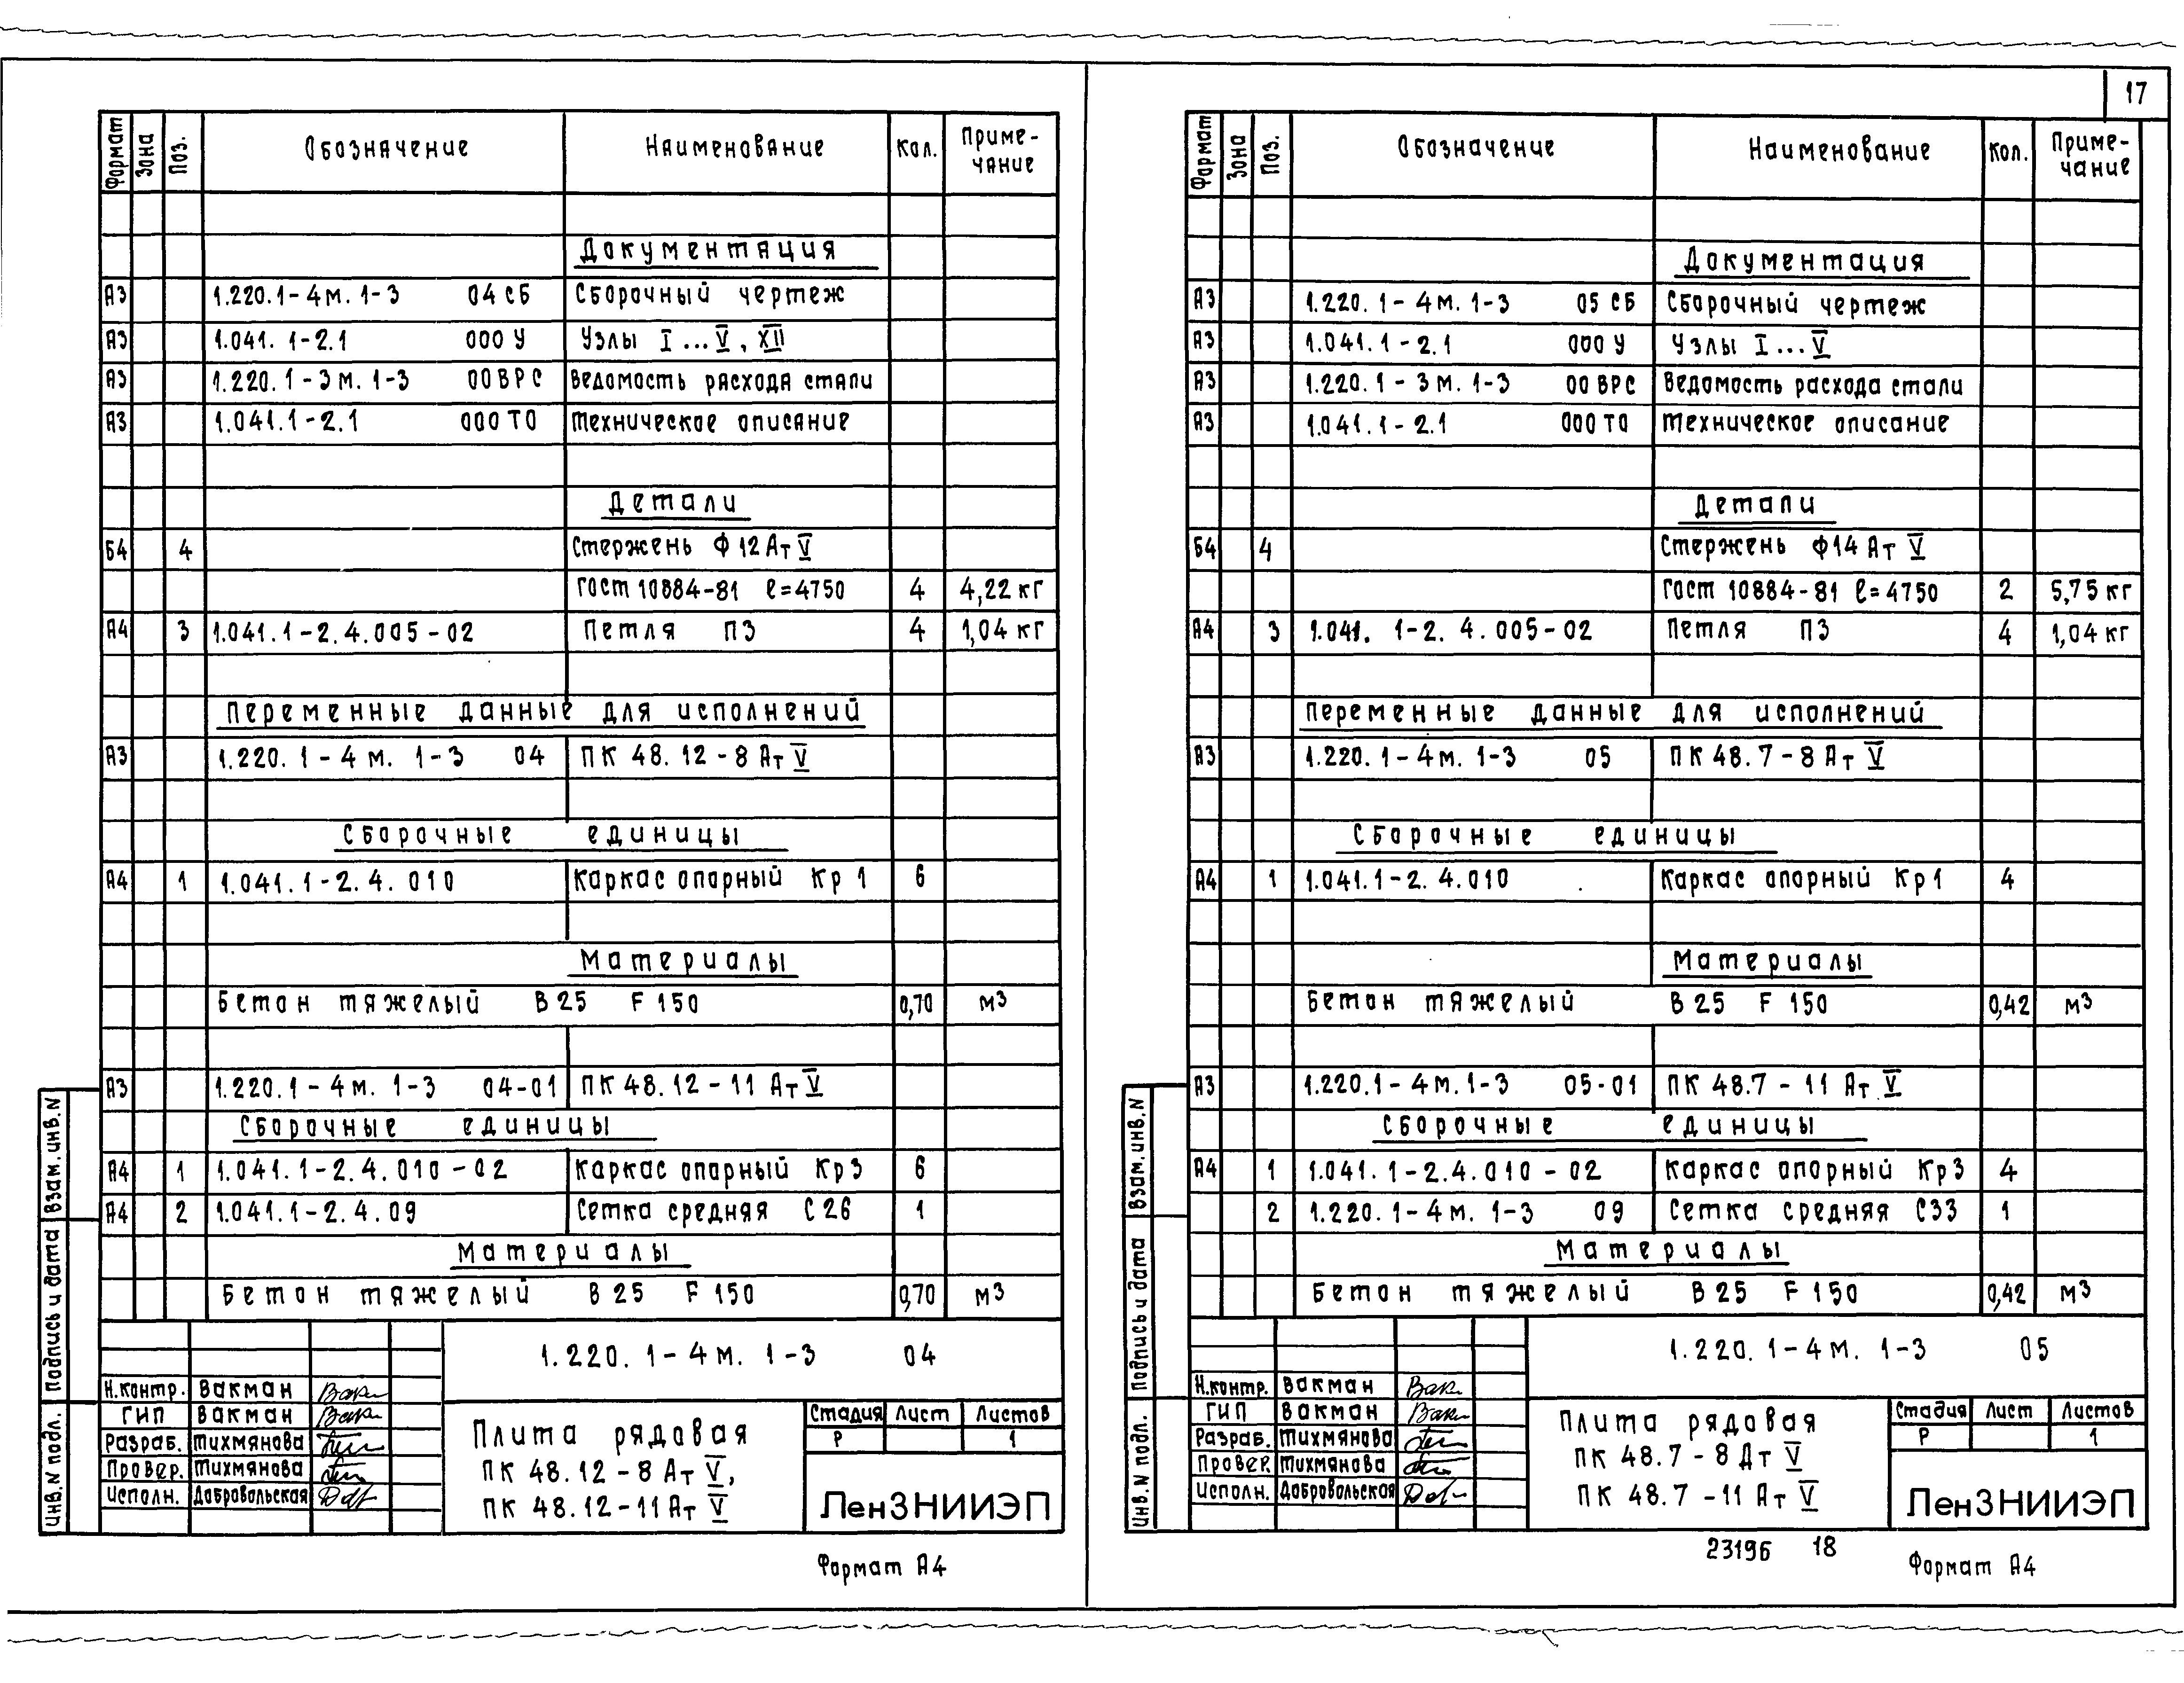 17
Формат Зона Поз. Обозначение Наименование Кол. Приме-чание
Документация
А3 1.220.1-4м.1-3 04 СБ Сборочный чертеж
А3 1.041.1-2.1 000 У Узлы I...V, XII
А3 1.220.1-3м.1-3 00 ВРС Ведомость расхода стали
А3 1.041.1-2.1 000 ТО Техническое описание
Детали
Б4 4 Стержень Ф12АтV
ГОСТ 10884-81 ℓ=4750 4 4,22 кг
А4 3 1.041.1-2.4.005-02 Петля П3 4 1,04 кг
Переменные данные для исполнений
А3 1.220.1-4м.1-3 04 ПК 48.12-8АтV
Сборочные единицы
А4 1 1.041.1-2.4.010 Каркас опорный Кр1 6
Материалы
Бетон тяжелый В25 F150 0,70 м3
А3 1.220.1-4м.1-3 04-01 ПК 48.12-11АтV
Сборочные единицы
А4 1 1.041.1-2.4.010-02 Каркас опорный Кр3 6
А4 2 1.041.1-2.4.09 Сетка средняя С26 1
Материалы
Бетон тяжелый В25 F150 0,70 м3
1.220.1-4м.1-3 04
Н.контр. Вакман
ГИП Вакман
Разраб. Тихмянова
Провер. Тихмянова
Исполн. Добровольская
Плита рядовая
ПК 48.12-8АтV,
ПК 48.12-11АтV
Стадия Лист Листов
Р 1
ЛенЗНИИЭП
Инв.N подл. Подпись и дата Взам.инв.N
Формат А4
Формат Зона Поз. Обозначение Наименование Кол. Приме-чание
Документация
А3 1.220.1-4м.1-3 05 СБ Сборочный чертеж
А3 1.041.1-2.1 000 У Узлы I...V
А3 1.220.1-3м.1-3 00 ВРС Ведомость расхода стали
А3 1.041.1-2.1 000 ТО Техническое описание
Детали
Б4 4 Стержень Ф14АтV
ГОСТ 10884-81 ℓ=4750 2 5,75 кг
А4 3 1.041.1-2.4.005-02 Петля П3 4 1,04 кг
Переменные данные для исполнений
А3 1.220.1-4м.1-3 05 ПК 48.7-8АтV
Сборочные единицы
А4 1 1.041.1-2.4.010 Каркас опорный Кр1 4
Материалы
Бетон тяжелый В25 F150 0,42 м3
А3 1.220.1-4м.1-3 05-01 ПК 48.7-11АтV
Сборочные единицы
А4 1 1.041.1-2.4.010-02 Каркас опорный Кр3 4
2 1.220.1-4м.1-3 09 Сетка средняя С33 1
Материалы
Бетон тяжелый В25 F150 0,42 м3
1.220.1-4м.1-3 05
Н.контр. Вакман
ГИП Вакман
Разраб. Тихмянова
Провер. Тихмянова
Исполн. Добровольская
Плита рядовая
ПК 48.7-8АтV
ПК 48.7-11АтV
Стадия Лист Листов
Р 1
ЛенЗНИИЭП
Инв.N подл. Подпись и дата Взам.инв.N
23196 18
Формат А4